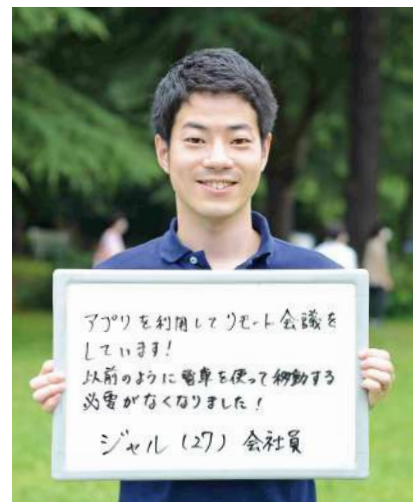 アプリを利用してリモート会議を
しています!
以前のように電車を使って移動する
必要がなくなりました!
ジャル(27) 会社員